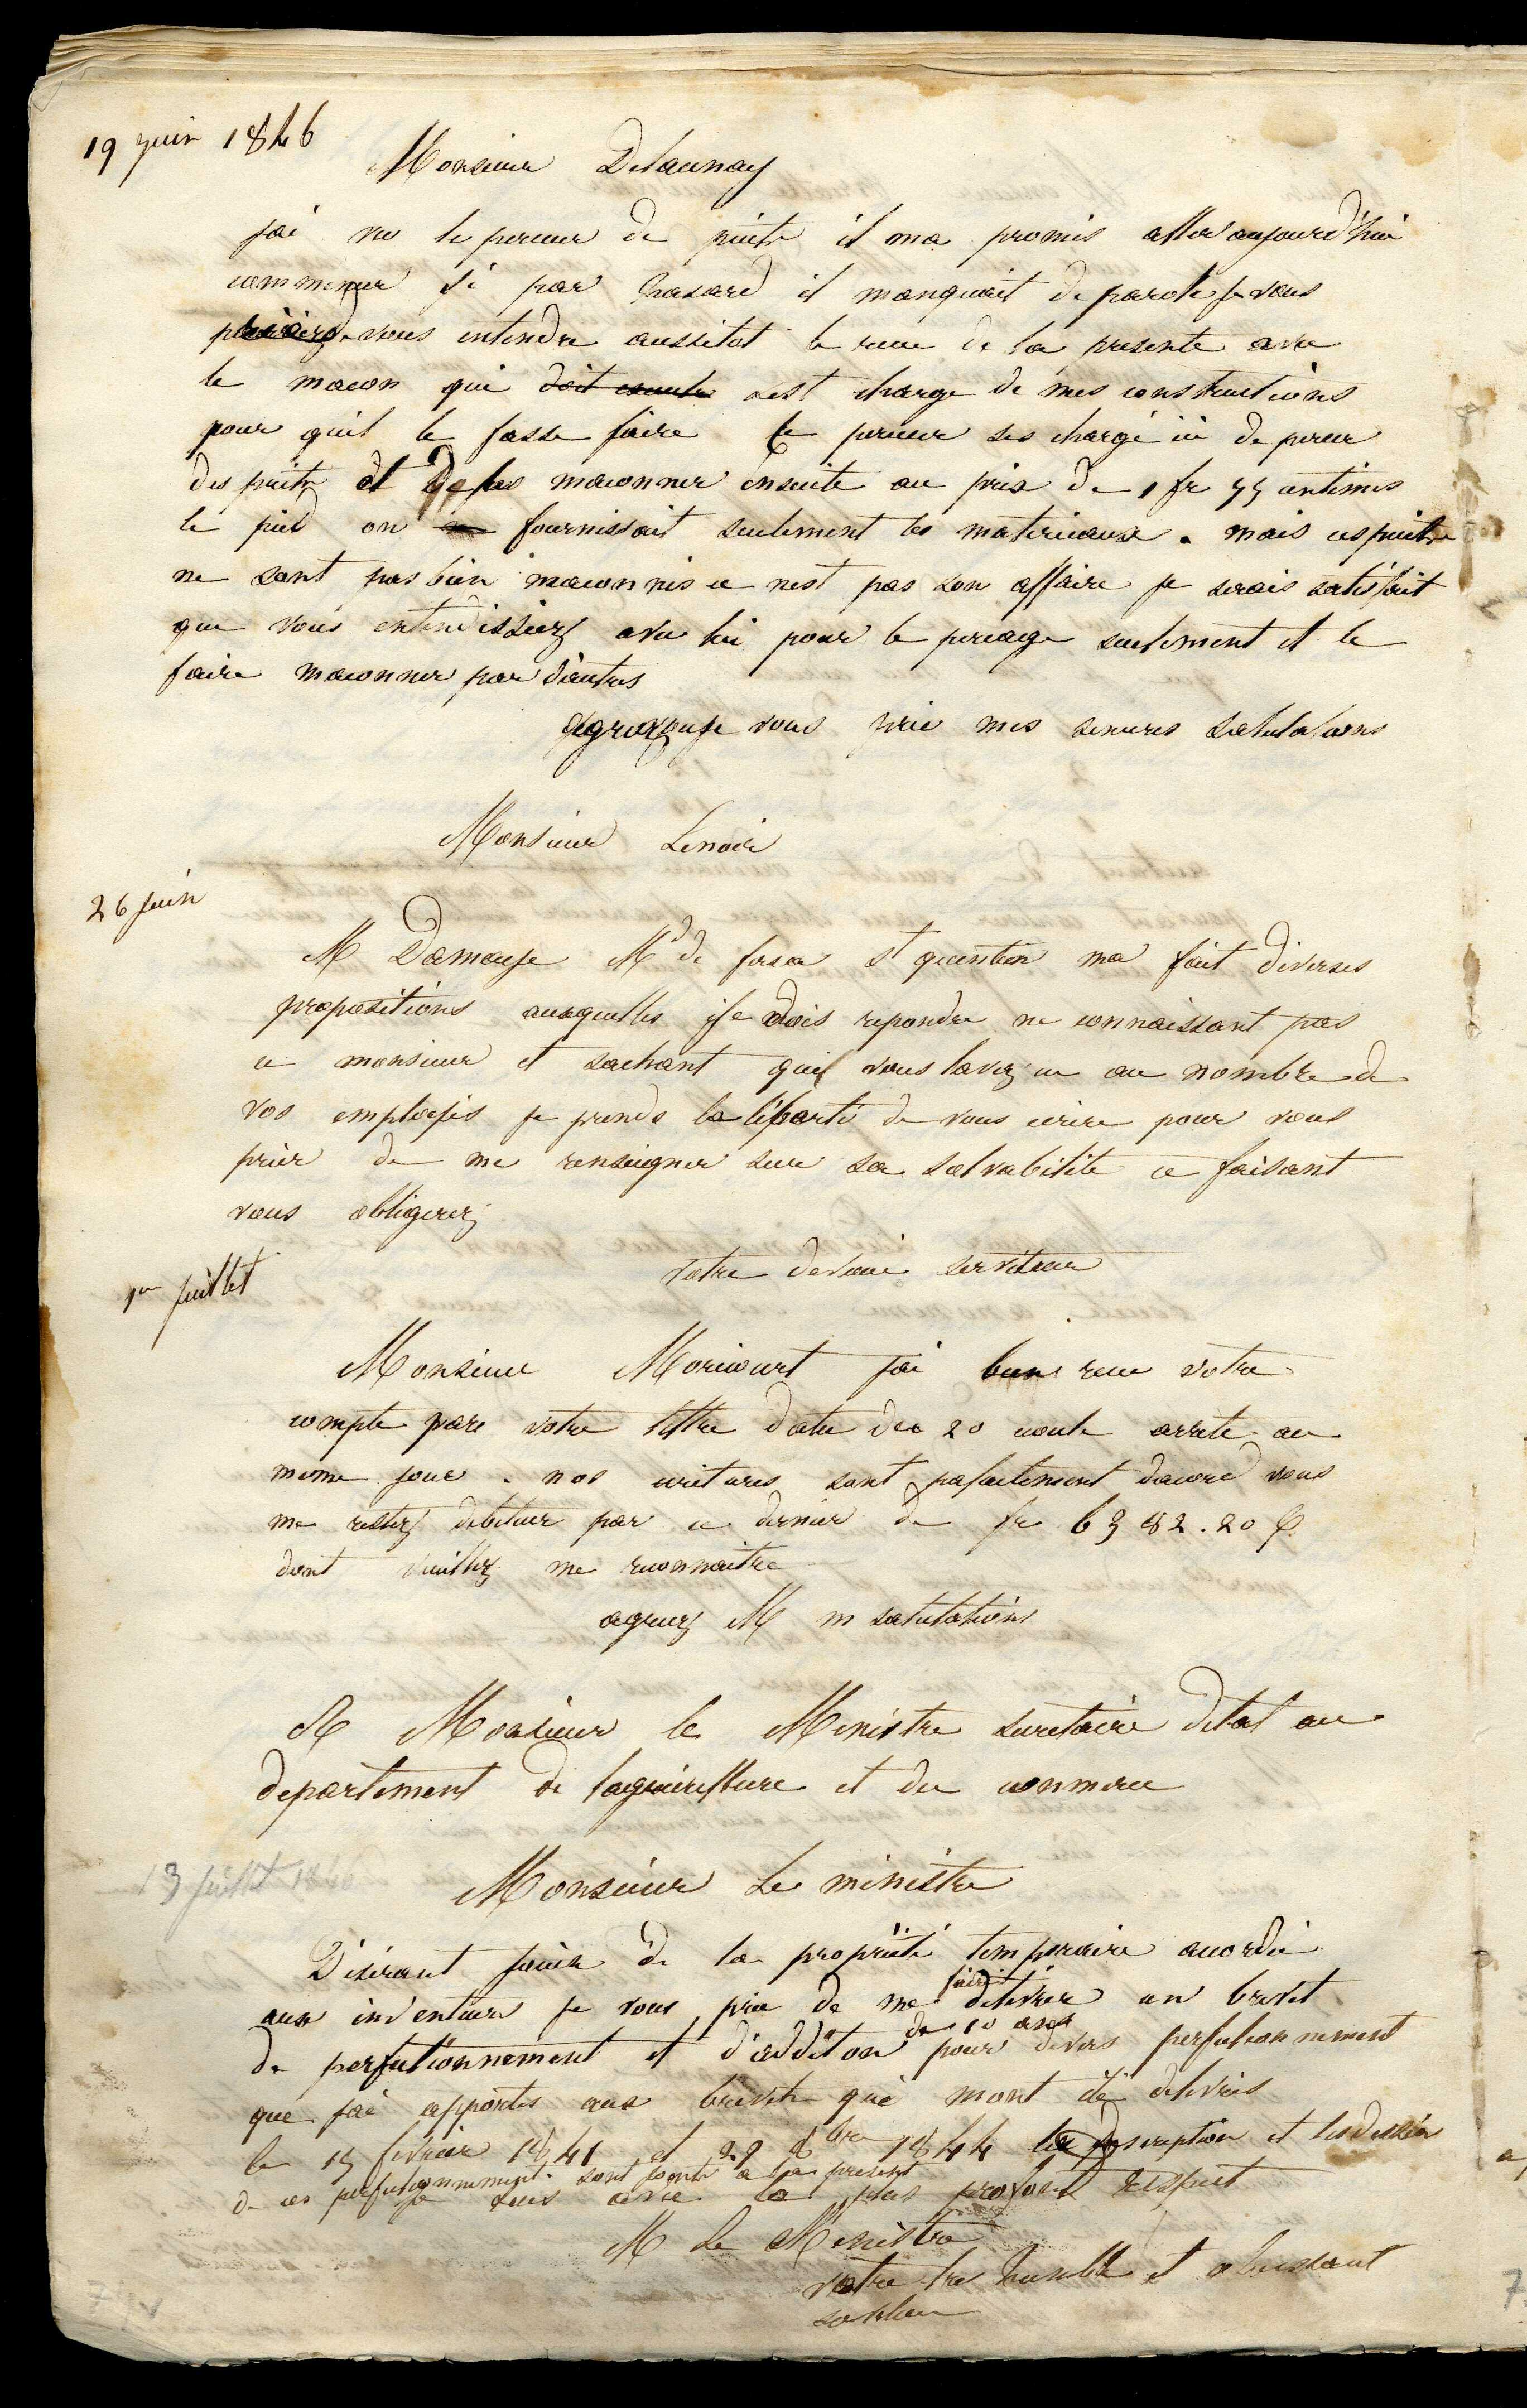 19 juin 1846
Monsieur Delaunay
jai vu le perceur de puits il ma promis aller aujourd'hui
commencer si par hasard il manquait de parole je vous
prierais de vous entendre aussitot le recu de la presente avec
le macon qui doit est charge de mes constructions
pour quil le fasse faire le perceur ses chargé ici de percer
des puits et de les maconner ensuite au prix de 1 fr 75 centimes
le pied on fournissait seulement les materieaux . mais ces puits
ne sont pas bien maconnes ce nest pas son affaire je serais satisfait
que vous entendissiez avec lui pour le percage seulement et le
faire maconner par d'autres
agreez je vous prie mes senceres salutations
Monsieur Lenoir
26 juin
M Damouse Md de St quentin ma fait diverses
propositions auxquelles je dois repondre ne connaissant pas
ce monsieur et sachant que vous lavez eu au nombre de
vos employés je prends la liberté de vous ecrire pour vous
prier de me renseigner sur sa solvabilite ce faisant
vous obligerez
votre devoué serviteur
1er juillet
Monsieur Moricourt jai bien recu votre
compte par votre lettre datee du 20 ecoule arrete au
meme jour . nos ecritures sont pafaitement daccord vous
me restez debiteur par ce dernier de fr 6382.20 c
dont veuillez me reconnaitre
agreez M m salutations
A Monsieur le Ministre secretaire detat au
departement de lagriculture et du commerce
13 juillet 1846
Monsieur Le ministre
Désirant jouir de la propriété temporaire accordée
aux inventeurs je vous prie de me faire délivrer un brevet
de perfectionnement et d'addition de 10 ans pour divers perfectionnement
que jai apportés aux brevets qui mont été delivrés
le 15 fevrier 1841 et 29 8bre 1844 la description et les dessins
de ces perfectionnement sont joints a la present
je suis avec la plus profond respect
M Le Ministre
votre tres humble et obeissant